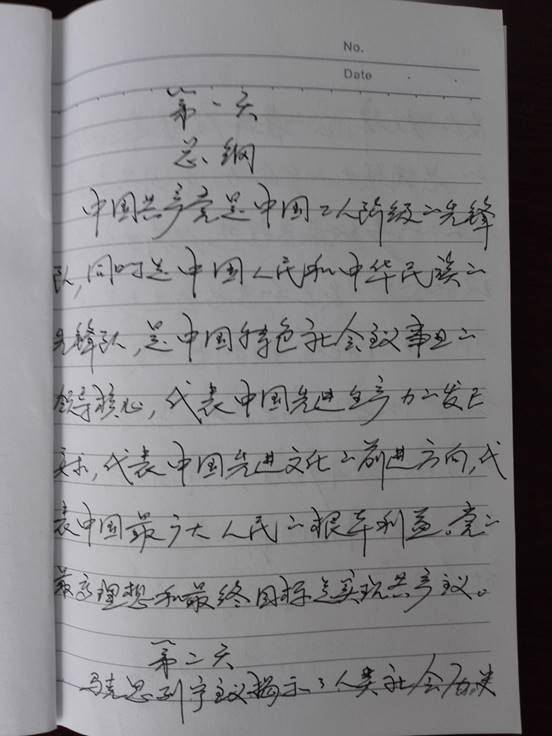 No.
Date
第一天
总纲
中国共产党是中国工人阶级的先锋
队，同时是中国人民和中华民族的
先锋队，是中国特色社会主义事业的
领导核心，代表中国先进生产力的发展
要求，代表中国先进文化的前进方向，代
表中国最广大人民的根本利益。党的
最高理想和最终目标是实现共产主义。
第二天
马克思列宁主义揭示了人类社会历史